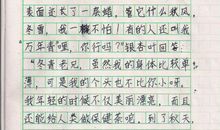 表面还长了一层蜡，管它什么秋风，
冬雪，我一概不怕！有的人还叫我
万年青"哩，你行吗？"银杏叶回答：
"冬青老兄，虽然我的身体比较单
薄，可是我的个头也不比你小呀。
我年轻的时候不仅美丽漂亮，而且
还能给人类做保健茶呢，到了秋天，